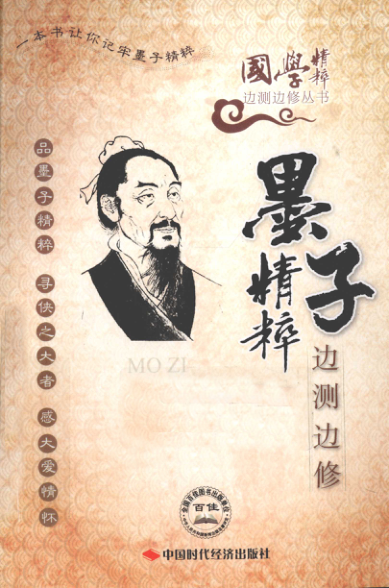 一本书让你记牢墨子精粹
國學精粹
边测边修丛书
墨子精粹
边测边修
品墨子精粹 寻侠之大者 感大爱情怀
MO ZI
百佳
中国时代经济出版社